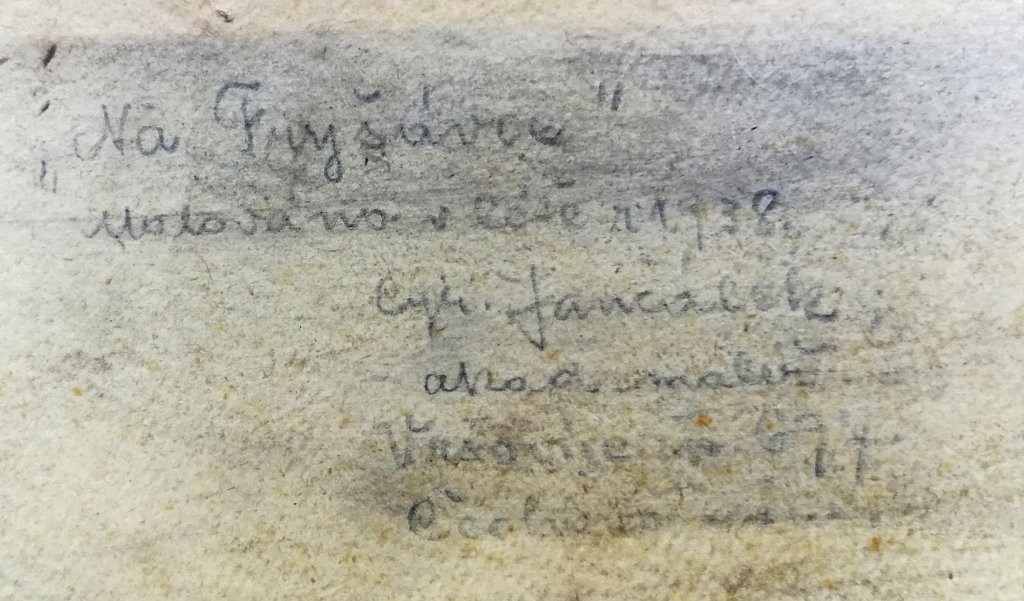 „Na Fryšávce"
Malováno v létě r 1938.
Cyr. Jančálek
akad. malíř
Vršovice 674